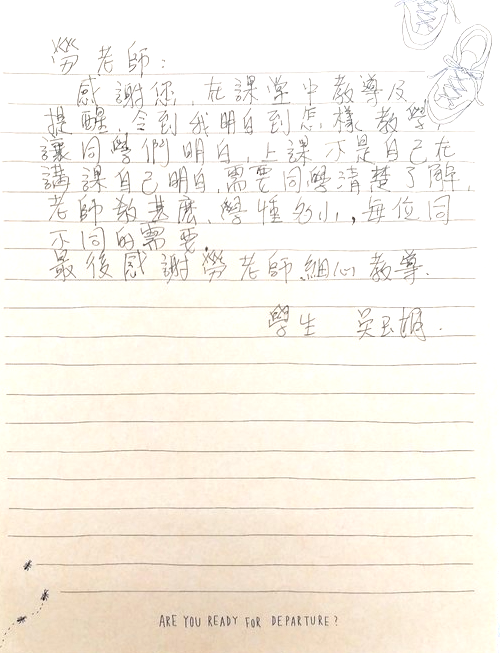 勞老師：
感謝您，在課堂中教導及
提醒，令到我明白到怎樣教學，
讓同學們明白，上課不是自己在
講課自己明白，需要同學清楚了解，
老師教甚麼，學懂多小，每位同
不同的需要。
最後感謝勞老師細心教導.
學生 吳玉
ARE YOU READY FOR DEPARTURE?